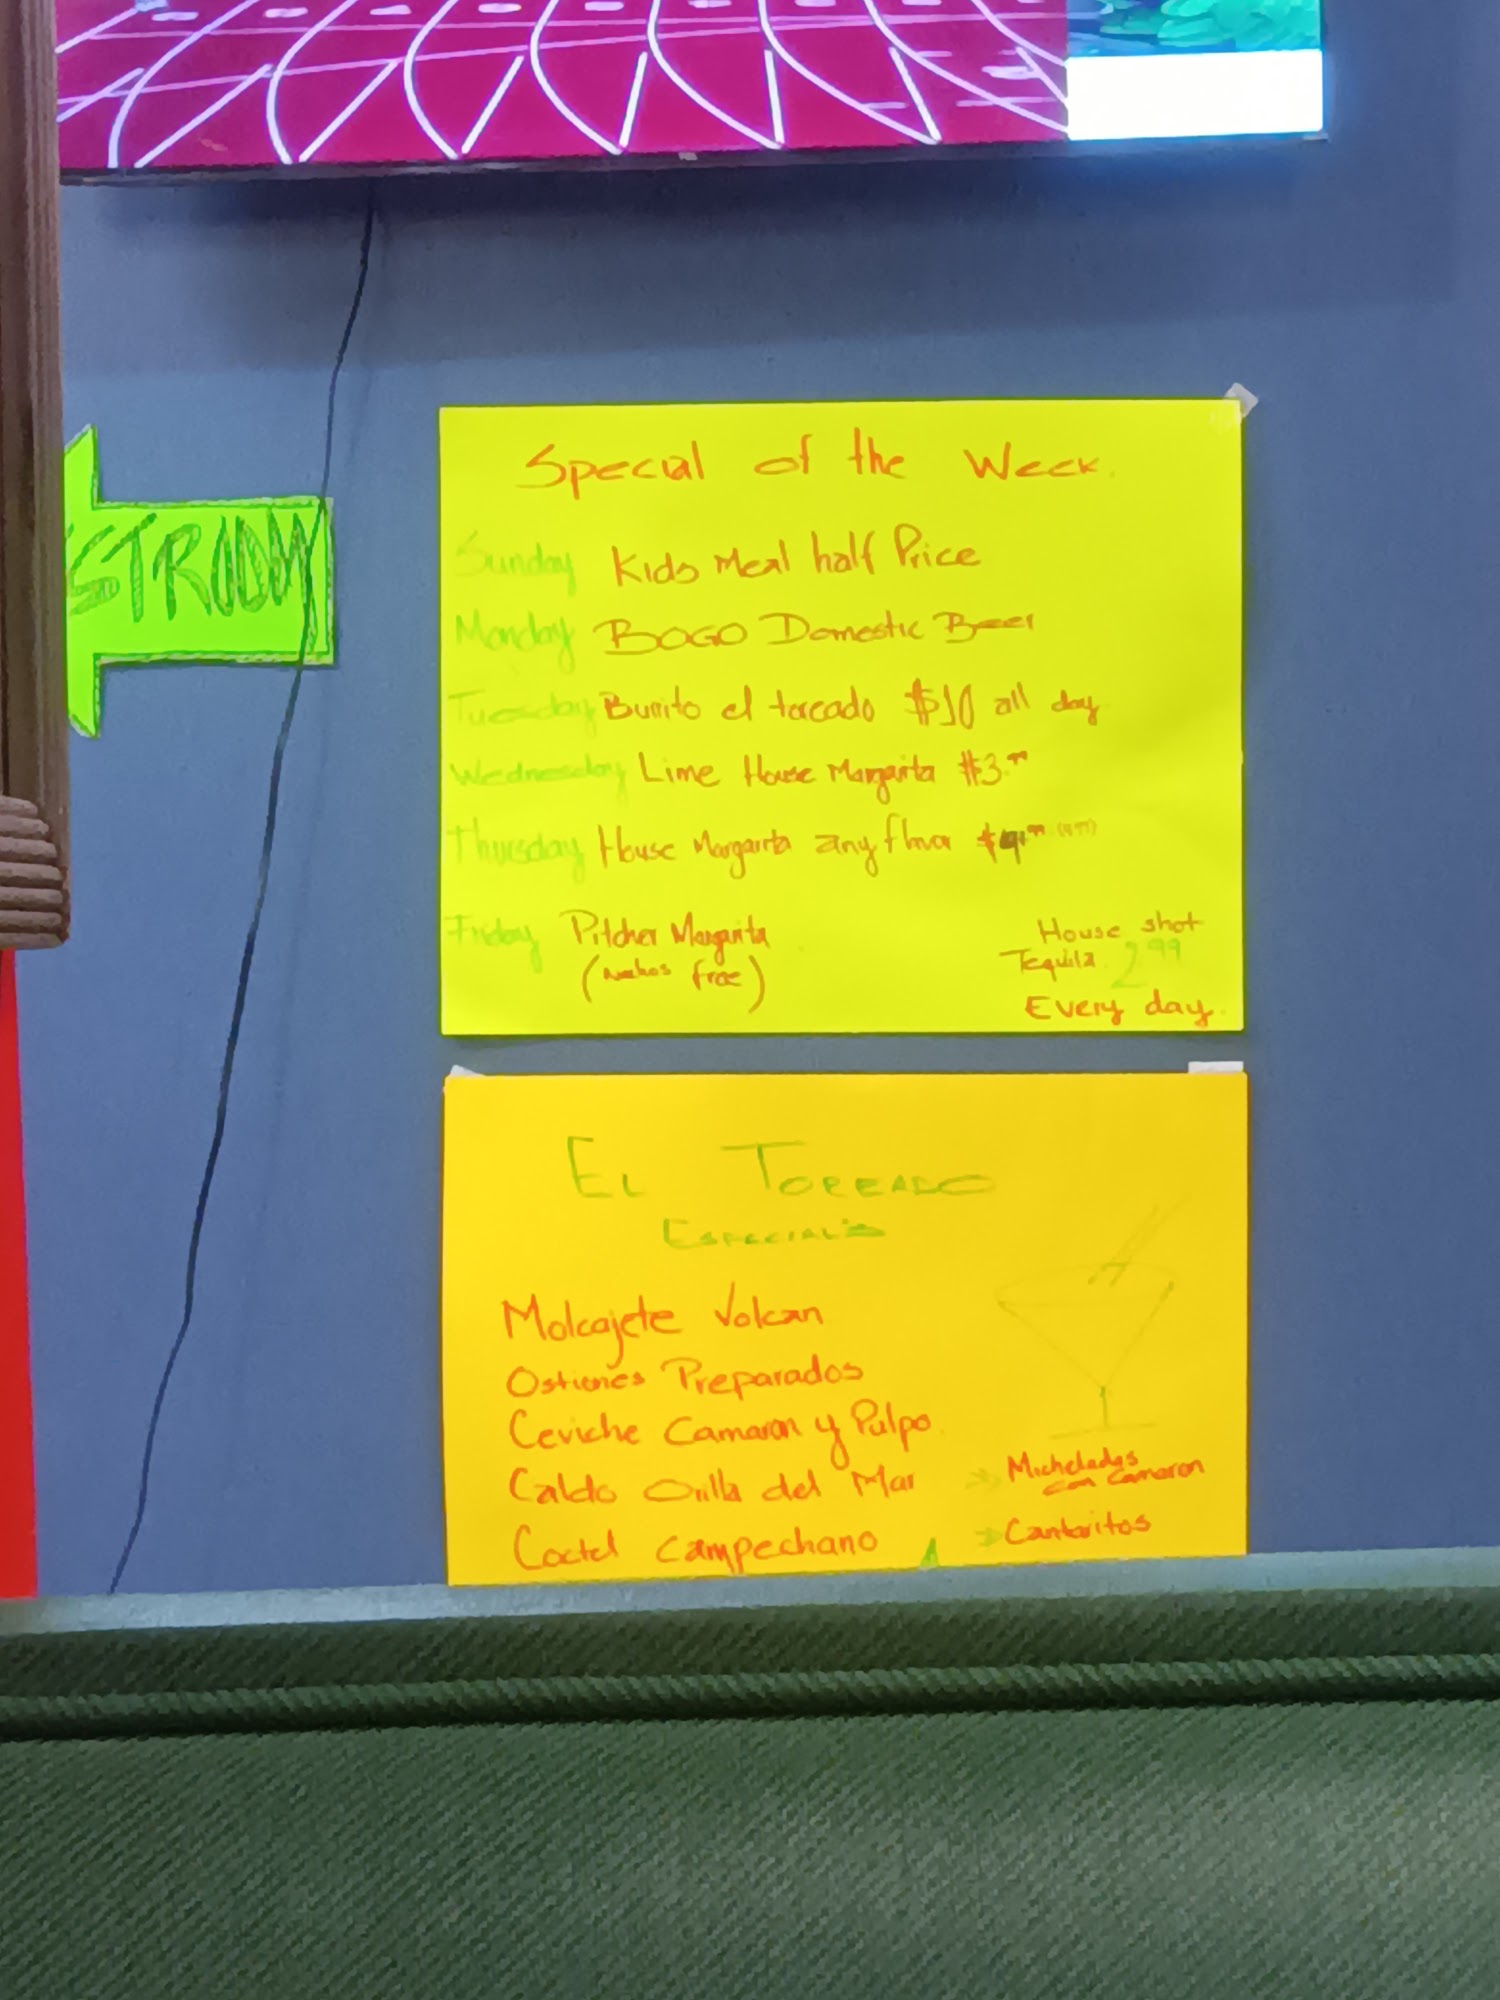 STROOM
Special of the Week.
Sunday Kids Meal half Price
Monday BOGO Domestic Beer
Tuesday Burrito el toreado $10 all day
Wednesday Lime House Margarita $3.99
Thursday House Margarita any flavor $4.99 (4.99)
Friday Pitcher Margarita
(nachos free)
House shot
Tequila 2.99
Every day.
EL TOREADO
ESPECIALS
Molcajete Volcan
Ostiones Preparados
Ceviche Camaron y Pulpo
Caldo Orilla del Mar
Coctel Campechano
Micheladas
con Camaron
Cantaritos